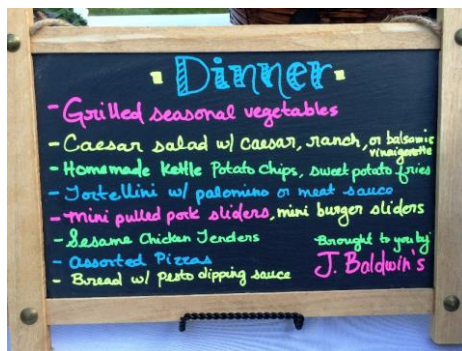 Dinner
- Grilled seasonal vegetables
- Caesar salad w/ caesar, ranch, or balsamic
vinaigerette
- Homemade kettle Potato Chips, sweet potato fries
- Tortellini w/ palomino or meat sauce
- mini pulled pork sliders, mini burger sliders
- Sesame Chicken Tenders
- Assorted Pizzas
- Bread w/ Pesto dipping sauce
Brought to you by
J. Baldwin's